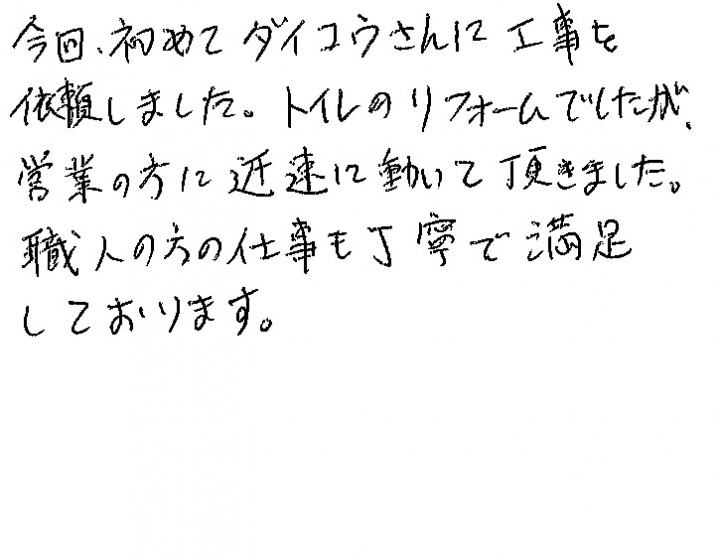 今回、初めてダイコウさんに工事を
依頼しました。トイレのリフォームでしたが、
営業の方に迅速に動いて頂きました。
職人の方の仕事も丁寧で満足
しております。